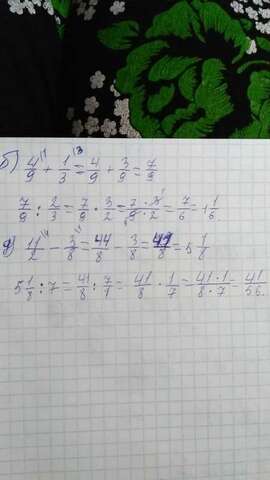 б) 4/9 \1 + 1/3 \3 = 4/9 + 3/9 = 7/9
7/9 : 2/3 = 7/9 · 3/2 = 7 · 3 / 9 · 2 = 7/6 = 1 1/6
д) 11/2 \4 - 3/8 \1 = 44/8 - 3/8 = 41/8 = 5 1/8
5 1/8 : 7 = 41/8 : 7/1 = 41/8 · 1/7 = 41 · 1 / 8 · 7 = 41/56.